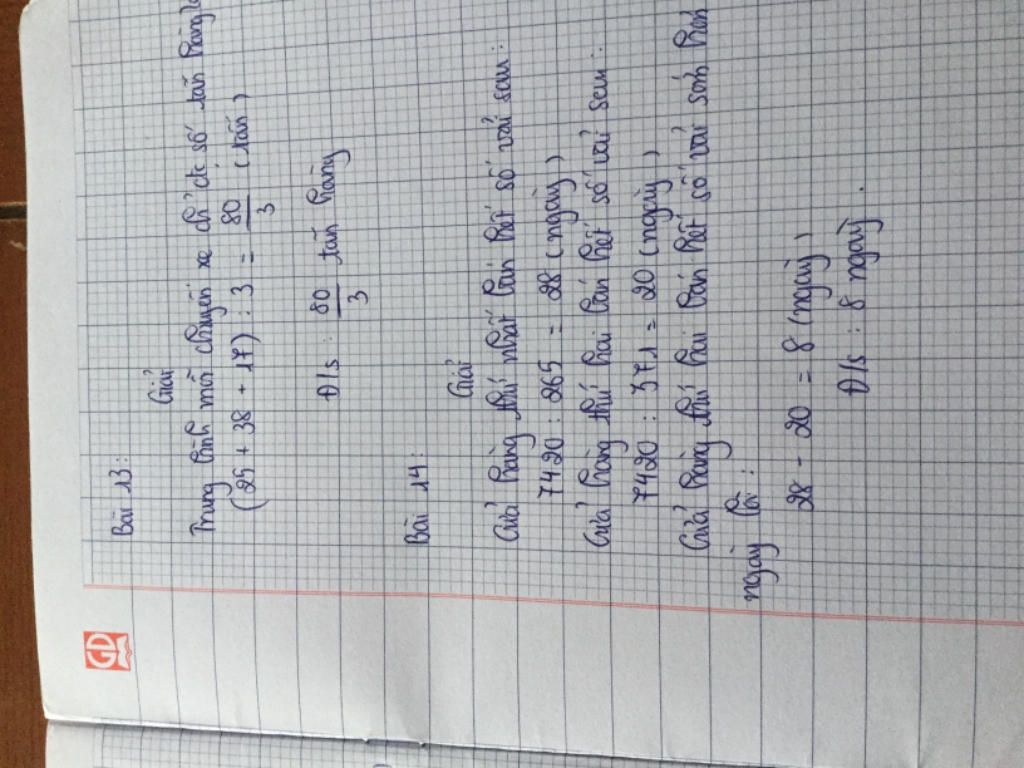 GD
Bài 13:
Giải
Trung bình mỗi chuyến xe chở đc số tấn hàng là
(25 + 38 + 17) : 3 = 80/3 (tấn)
Đ/s : 80/3 tấn hàng
Bài 14:
Giải
Cửa hàng thứ nhất bán hết số vải sau:
7420 : 265 = 28 (ngày)
Cửa hàng thứ hai bán hết số vải sau:
7420 : 371 = 20 (ngày)
Cửa hàng thứ hai bán hết số vải sớm hơn
ngày là:
28 - 20 = 8 (ngày)
Đ/s : 8 ngày.